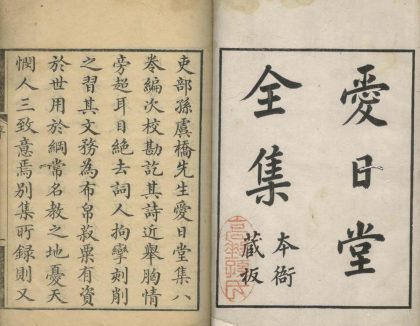 愛日堂
全集
本衙
藏板
吏部孫虞橋先生愛日堂集八
卷編次校勘訖其詩近舉胸情
旁超耳目絶去詞人拘孿刻削
之習其文務為布帛菽粟有資
於世用於綱常名教之地憂天
憫人三致意焉别集所録則又